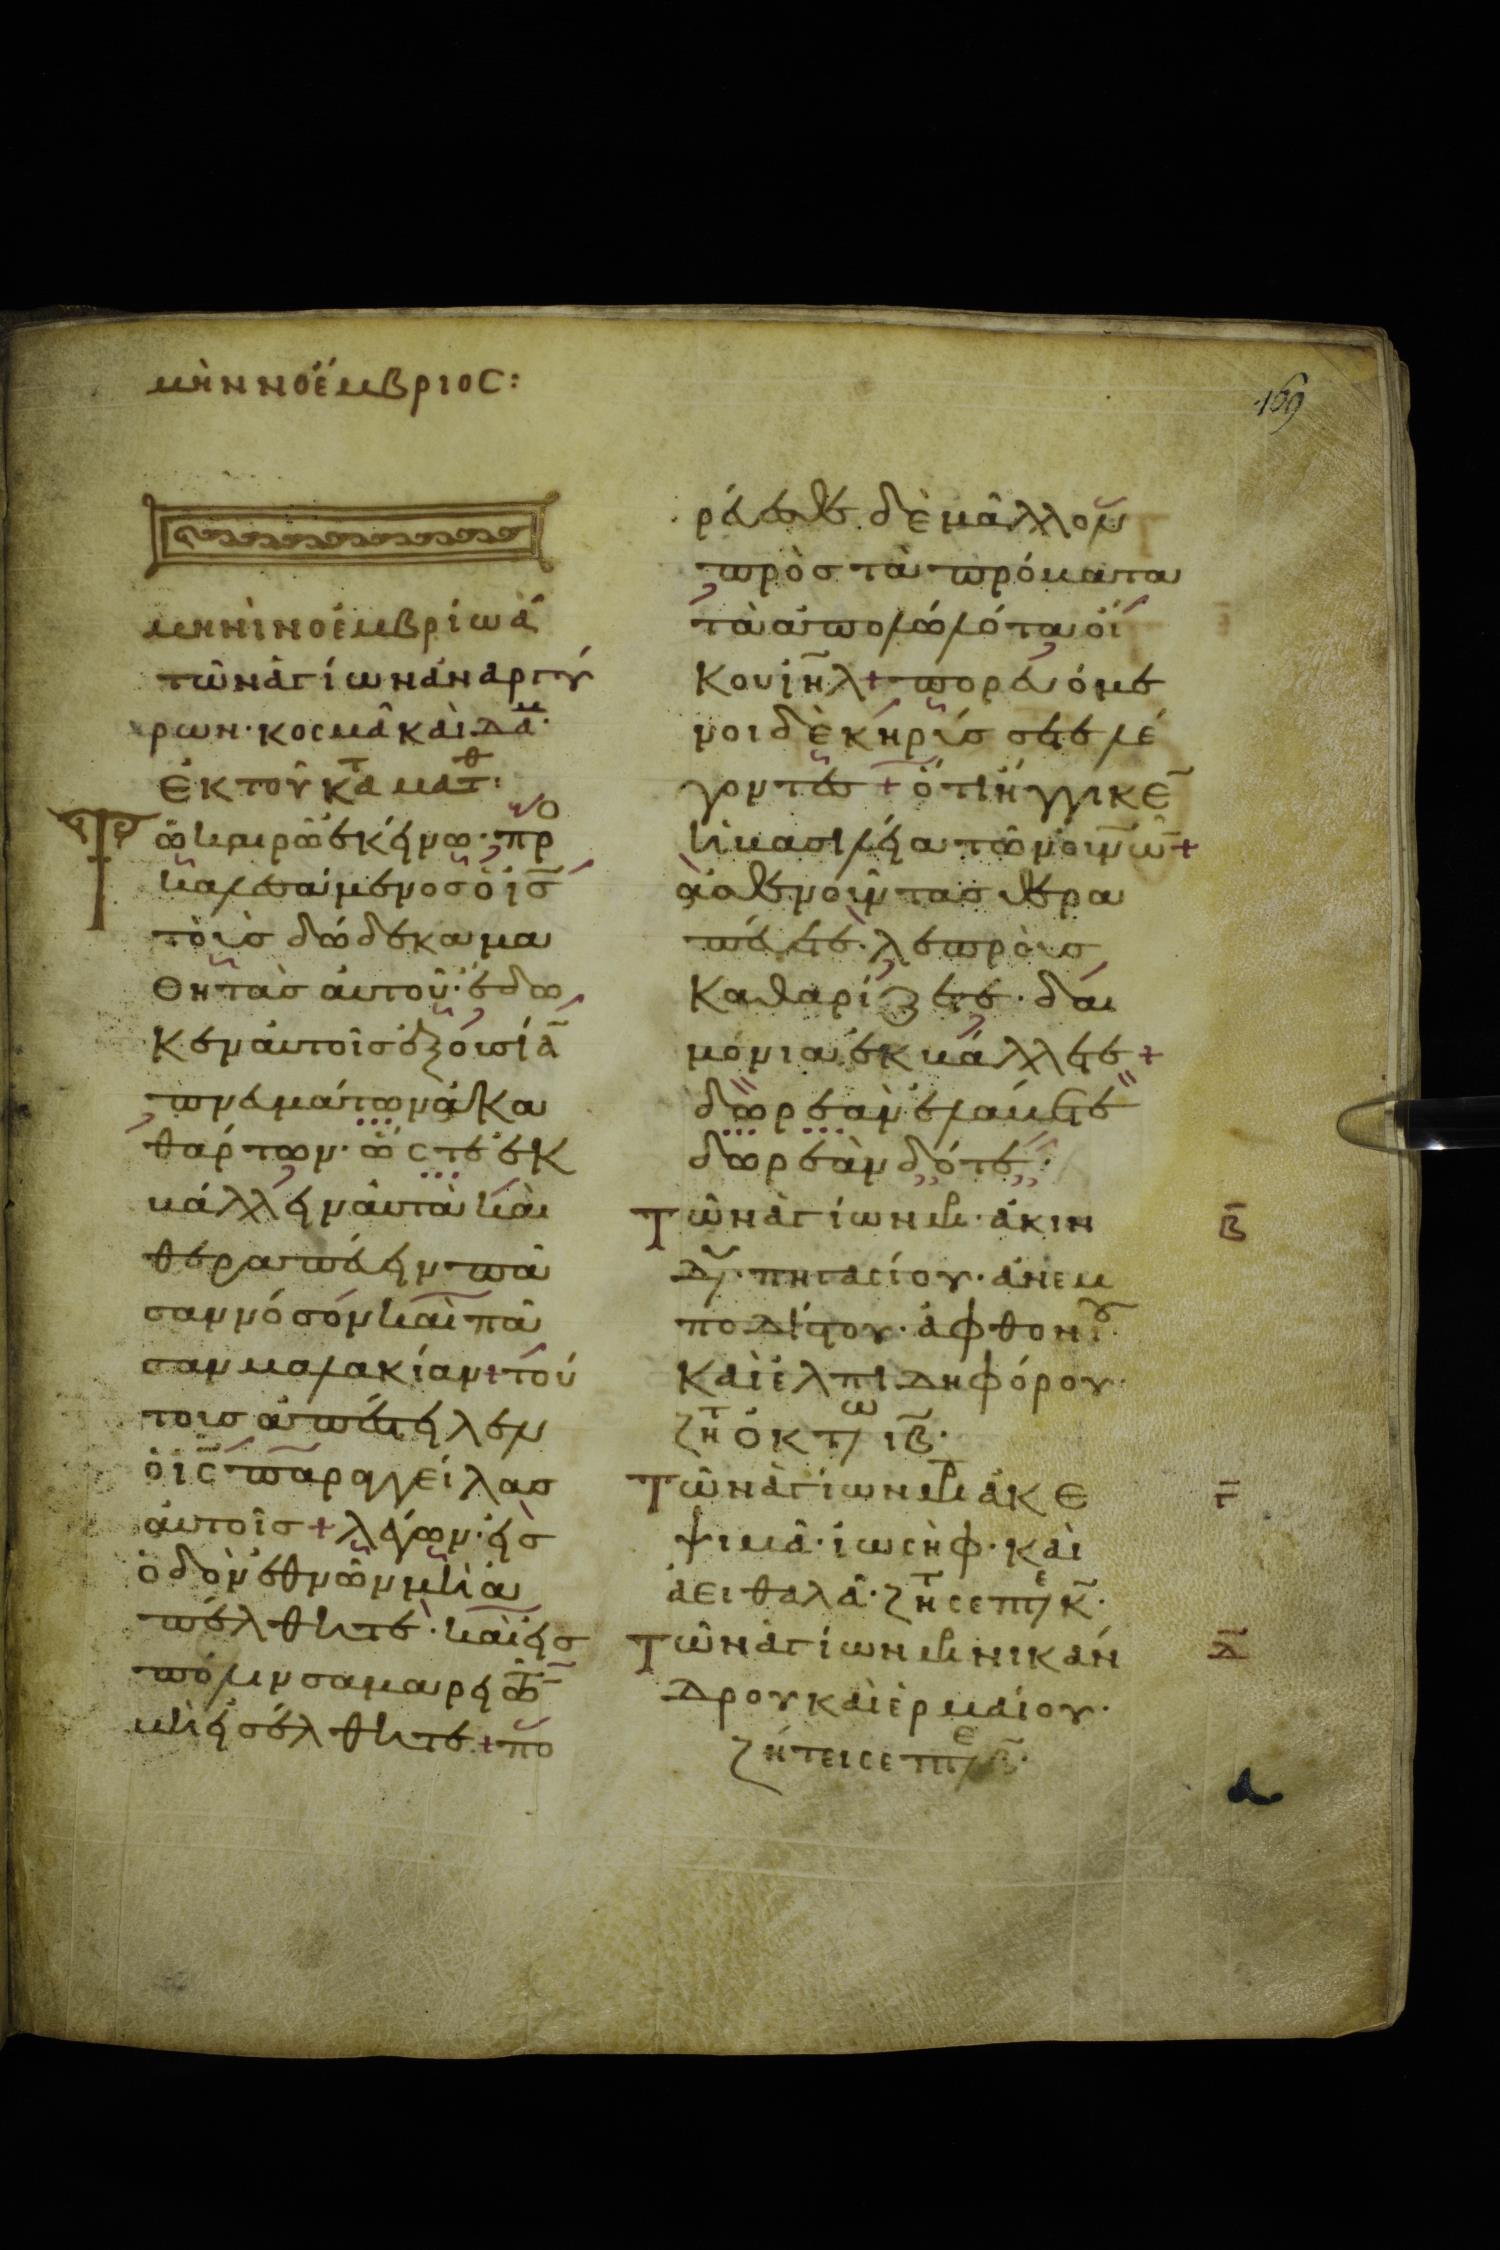 μὴν νοέμβριος:
169
μηνὶ νοεμβρίω ά
τῶν ἁγίων ἀναργύ
ρων· κοσμᾶ καὶ δαμ·
ἐκ τοῦ κατὰ ματθ:
Τῶ καιρῶ ἐκείνω· προ
καλεσάμενος ὁ ις
τοὺς δώδεκα μα
θητὰς αὐτοῦ· ἔδω
κεν αὐτοῖς ἐξουσίαν
πνευμάτων ἀκα
θάρτων· ὥστε ἐκ
βάλλειν αὐτὰ καὶ
θεραπεύειν πᾶ
σαν νόσον καὶ πᾶ
σαν μαλακίαν + τού
τους ἀπέστειλεν
ὁ ις παραγγείλας
αὐτοῖς + λέγων· εἰς
ὁδὸν ἐθνῶν μὴ ἀ
πέλθητε· καὶ εἰς
πόλιν σαμαρειτῶν
μὴ εἰσέλθητε + πο
ρεύεσθε δὲ μᾶλλον
πρὸς τὰ πρόβατα
τὰ ἀπολωλότα οἴ
κου ιηλ + πορευόμε
νοι δὲ κηρύσσετε λέ
γοντες + ὅτι ἤγγικεν
ἡ βασιλεία τῶν οὐνῶν +
ἀσθενοῦντας θερα
πεύετε· λεπροὺς
καθαρίζετε· δαι
μόνια ἐκβάλλετε +
δωρεὰν ἐλάβετε
δωρεὰν δότε:
Τῶν ἁγίων μ· ἀκιν
δυ· πηγασίου· ἀνεμ
ποδίστου· ἀφθονίου·
καὶ ἐλπιδηφόρου·
ζητ ὀκτω ιβ·
β
Τῶν ἁγίων μ ἀκε
ψιμᾶ· ἰωσὴφ· καὶ
ἀειθαλᾶ· ζητ σεπτε κ·
γ
Τῶν ἁγίων μ νικάν
δρου καὶ ἑρμαίου·
ζήτει σεπτε β·
δ